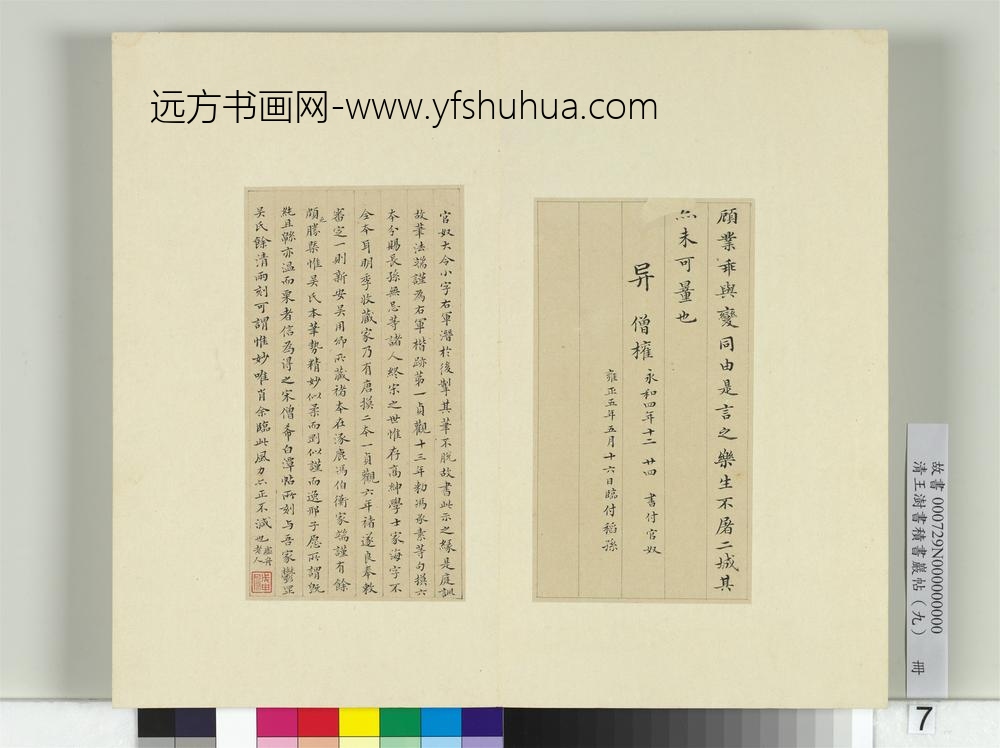 远方书画网-www.yfshuhua.com
顧業乖與變同由是言之樂生不屠二城其
未可量也
异 僧權 永和四年十二 廿四 書付官奴
雍正五年五月十六日臨付稻孫
官奴大令小字右軍潛於後掣其筆不脫故書此示之緣是庭訓
故筆法端謹為右軍楷跡第一貞觀十三年勅馮承素等勾摸六
本分賜長孫無忌等諸人終宋之世惟存高紳學士家海字不
全本耳明季收藏家乃有唐摸二本一貞觀六年褚遂良奉敕
審定一則新安吳用卿所藏褚本在涿鹿馮伯衡家端謹有餘
頗之勝槩惟吳氏本筆勢精妙似柔而剛似謹而逸邢子愿所謂既
純且縣亦溫而栗者信為得之宋僧希白潭帖所刻与吾家鬱罡
吳氏餘清兩刻可謂惟妙唯肖余臨此風力亦正不減也 虛舟老人
故書 000729N000000000
清王澍書積書巖帖（九） 冊
7